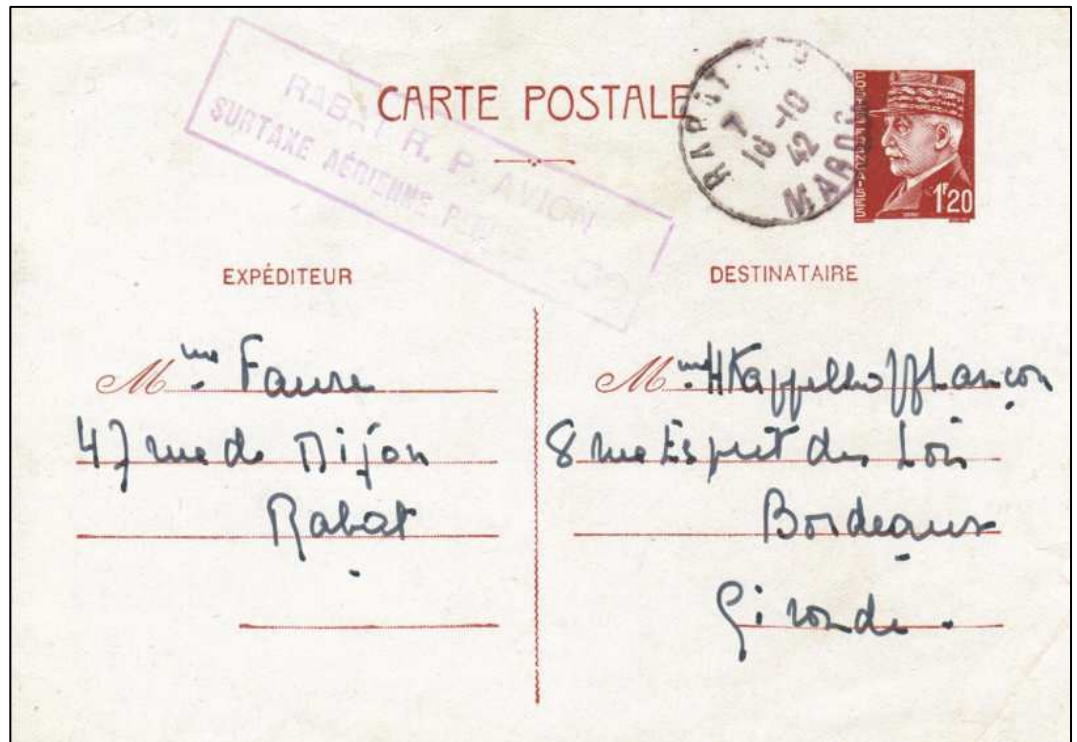 CARTE POSTALE
RABAT R. P. AVION
SURTAXE AÉRIENNE
RABAT R.P
7
10 -10
42
MAROC
POSTES FRANÇAISES
1F20
EXPÉDITEUR
Mme Faure
47 rue de Dijon
Rabat
DESTINATAIRE
Mme H Kappelhoff Lançon
8 rue Esprit des Lois
Bordeaux
Gironde.